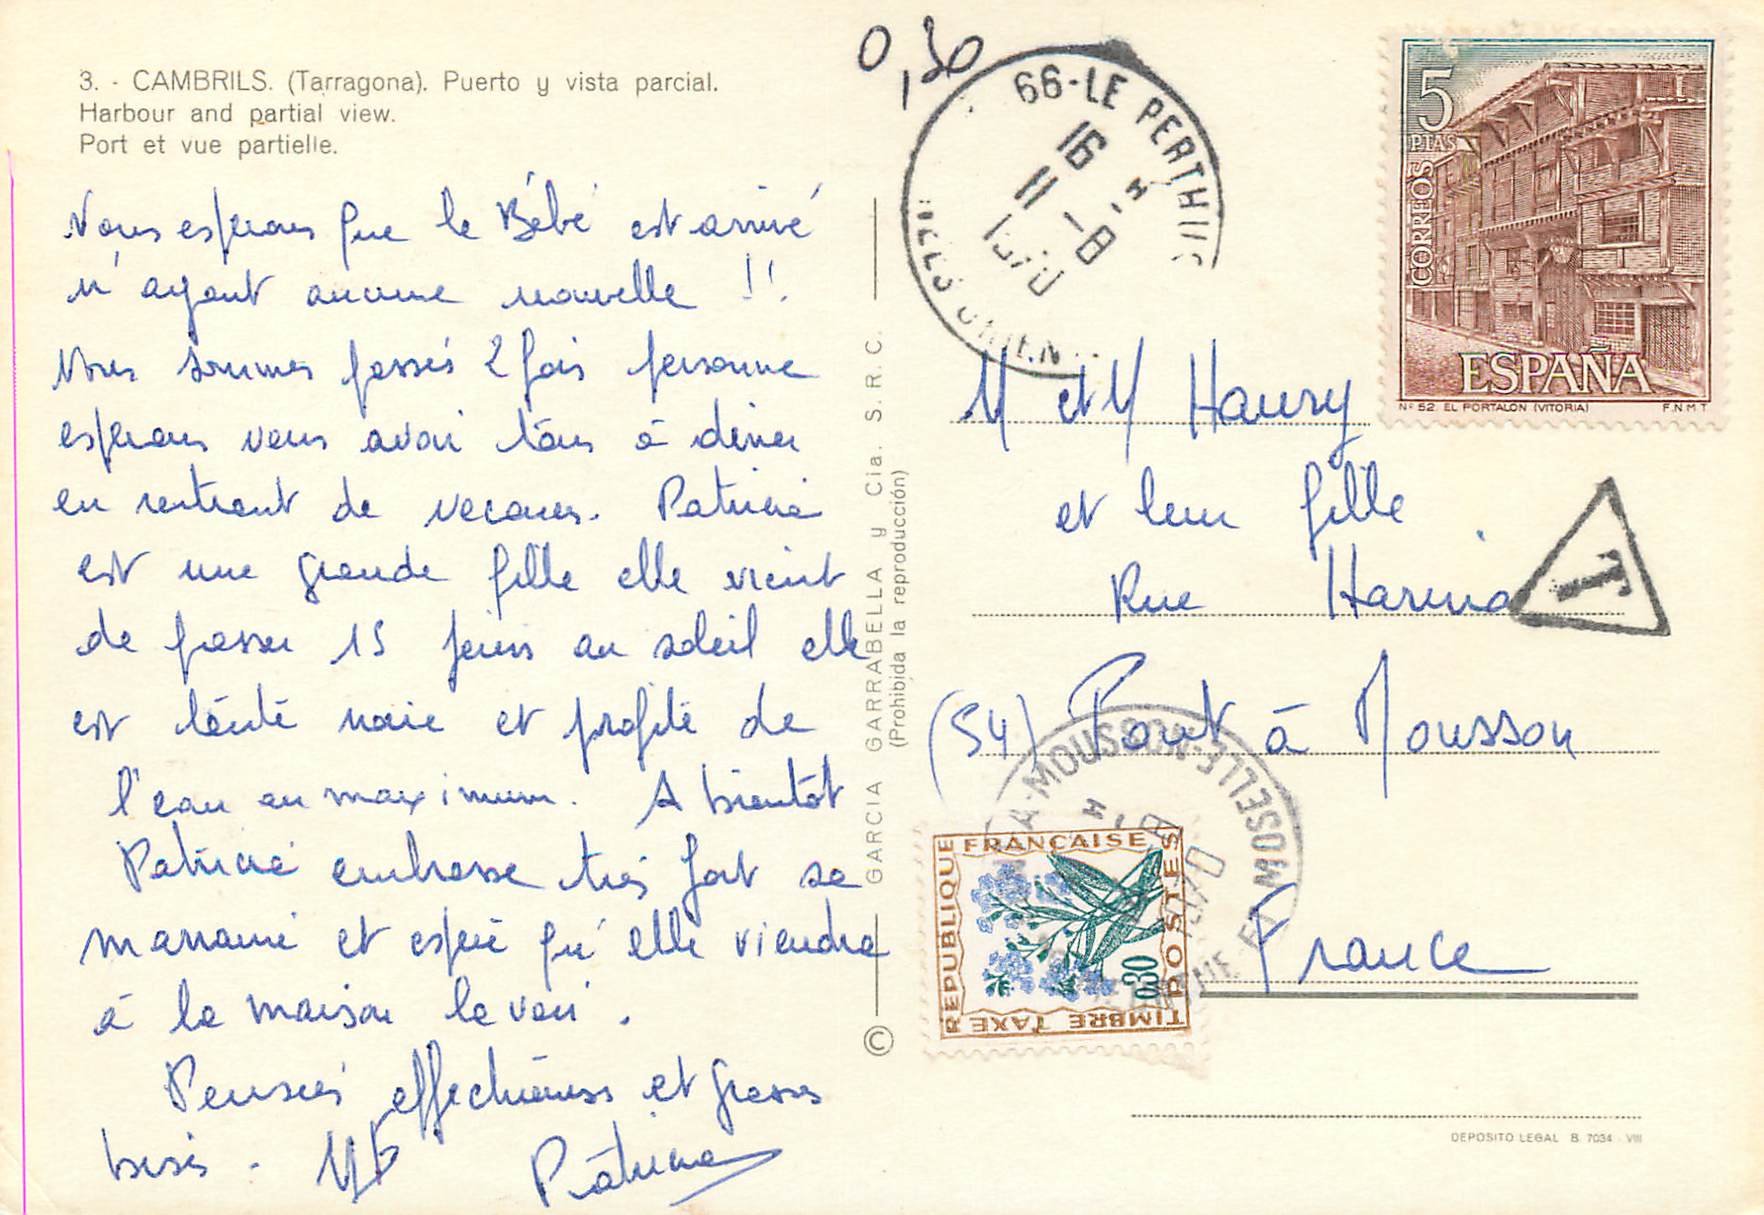 3. - CAMBRILS. (Tarragona). Puerto y vista parcial.
Harbour and partial view.
Port et vue partielle.
Nous esperons que le Bébé est arrivé
n'ayant aucune nouvelle !!
Nous sommes passés 2 fois personne
esperons vous avoir tous à diner
en rentrant de vacances. Patricia
est une grande fille elle vient
de passer 15 jours au soleil elle
est toute noire et profite de
l'eau au maximum. A bientôt
Patricia embrasse très fort sa
marraine et espère qu'elle viendra
à la maison la voir.
Pensées affectueuses et grosses
bises.
Patricia
GARCIA GARRABELLA y Cia. S. R. C.
(Prohibida la reproducción)
©
0,30
66-LE PERTHUS
16 H
11 - 8
1970
5
PTAS
CORREOS
ESPAÑA
Nº 52. EL PORTALON (VITORIA) F.N.M.T.
M et M Haury
et leur fille
Rue
T
(54) Pont à Mousson
France
A-MOUSSON
MOSELLE
REPUBLIQUE
FRANÇAISE
POSTES
TIMBRE TAXE
0,30
DEPOSITO LEGAL B. 7034 - VIII